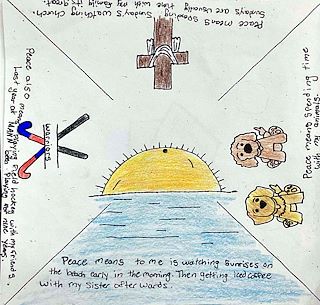 Peace means spending
Sunday's are usually time with my family its great.
Sunday's watching church.
Peace means spending time
with my animals.
Peace also means playing field hockey with my friends.
Last year at
been playing for nine years.
warriors
Peace means to me is watching sunrises on
the beach early in the morning. Then getting iced coffee
with my sister after wards.